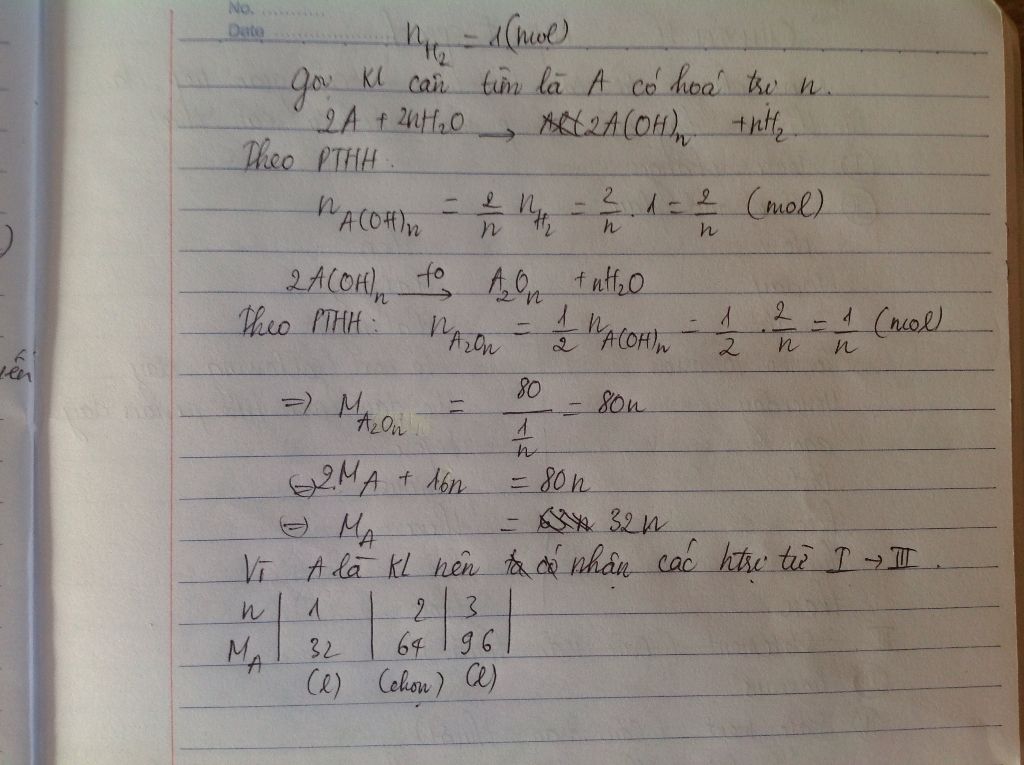 No. ............
Date ..................
n_H₂ = 1 (mol)
Gọi Kl cần tìm là A có hoá trị n.
2A + 2nH₂O → 2A(OH)ₙ + nH₂
Theo PTHH:
n_A(OH)ₙ = 2/n n_H₂ = 2/n . 1 = 2/n (mol)
2A(OH)ₙ →(t°) A₂Oₙ + nH₂O
Theo PTHH: n_A₂Oₙ = 1/2 n_A(OH)ₙ = 1/2 . 2/n = 1/n (mol)
=> M_A₂Oₙ = 80/(1/n) = 80n
(=) 2M_A + 16n = 80n
(=) M_A = 32n
Vì A là Kl nên nhận các htrị từ I → III.
n | 1 | 2 | 3 |
M_A | 32 | 64 | 96 |
(l) (chọn) (l)